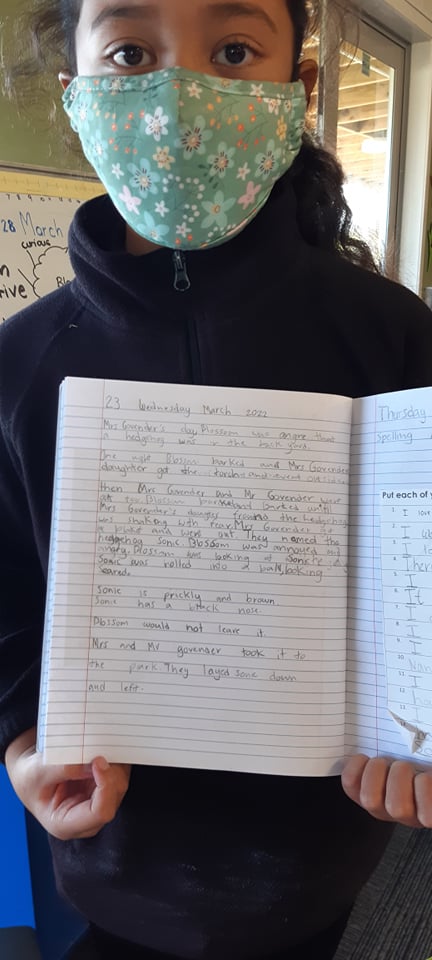 28 March
curious
23 Wednesday March 2022
Mrs Govender's day, Blossom was angre that
a hedgehog was in the back yard.
One night Blossom barked and Mrs Govender
the torch and went outside
then Mrs Govender and Mr Govender were
at tea. Blossom barked and barked until
Mrs Govender's found the hedgehog
was shaking with fear. Mrs Govender
and went out They named the
hedgehog sonic. Blossom was annoyed and
angry. Blossom was looking at Sonic
Sonic was rolled into a ball, looking
scared.
Sonic is prickly and brown.
Sonic has a black nose.
Blossom would not leave it.
Mrs and Mr govender took it to
the park. They layed sonic down
and left.
Thursday
Spelling
Put each of
1. I love
2. I
3.
4.
5. I
6. I
7.
8. I
9. I
10.
11.
12.